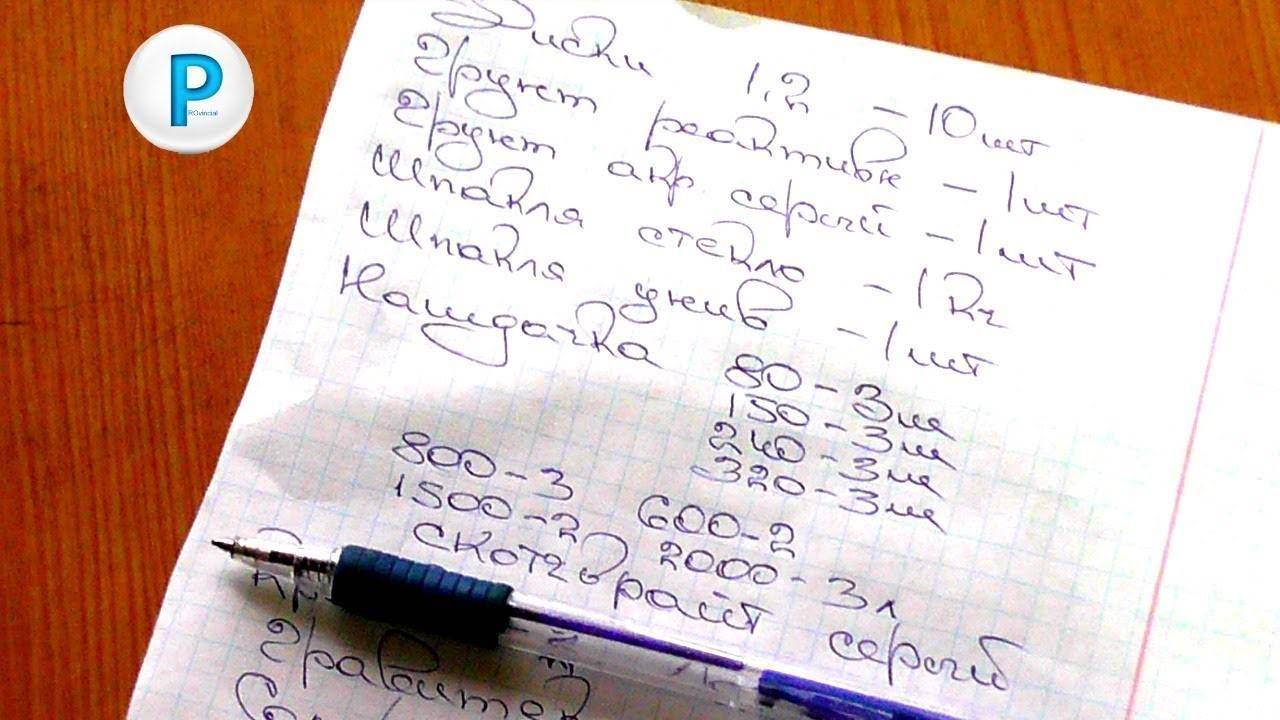 P
ROvincial
Диски 1,2 - 10 шт
Грунт реактивн - 1 шт
Грунт акр. серый - 1 шт
Шпакля стекло - 1 кг
Шпакля унив - 1 шт
Наждачка 80 - 3 м
150 - 3 м
240 - 3 м
800 - 3 320 - 3 м
1500 - 2 600 - 2
скотчбрайт 2000 - 3 л
серый
Гравитек